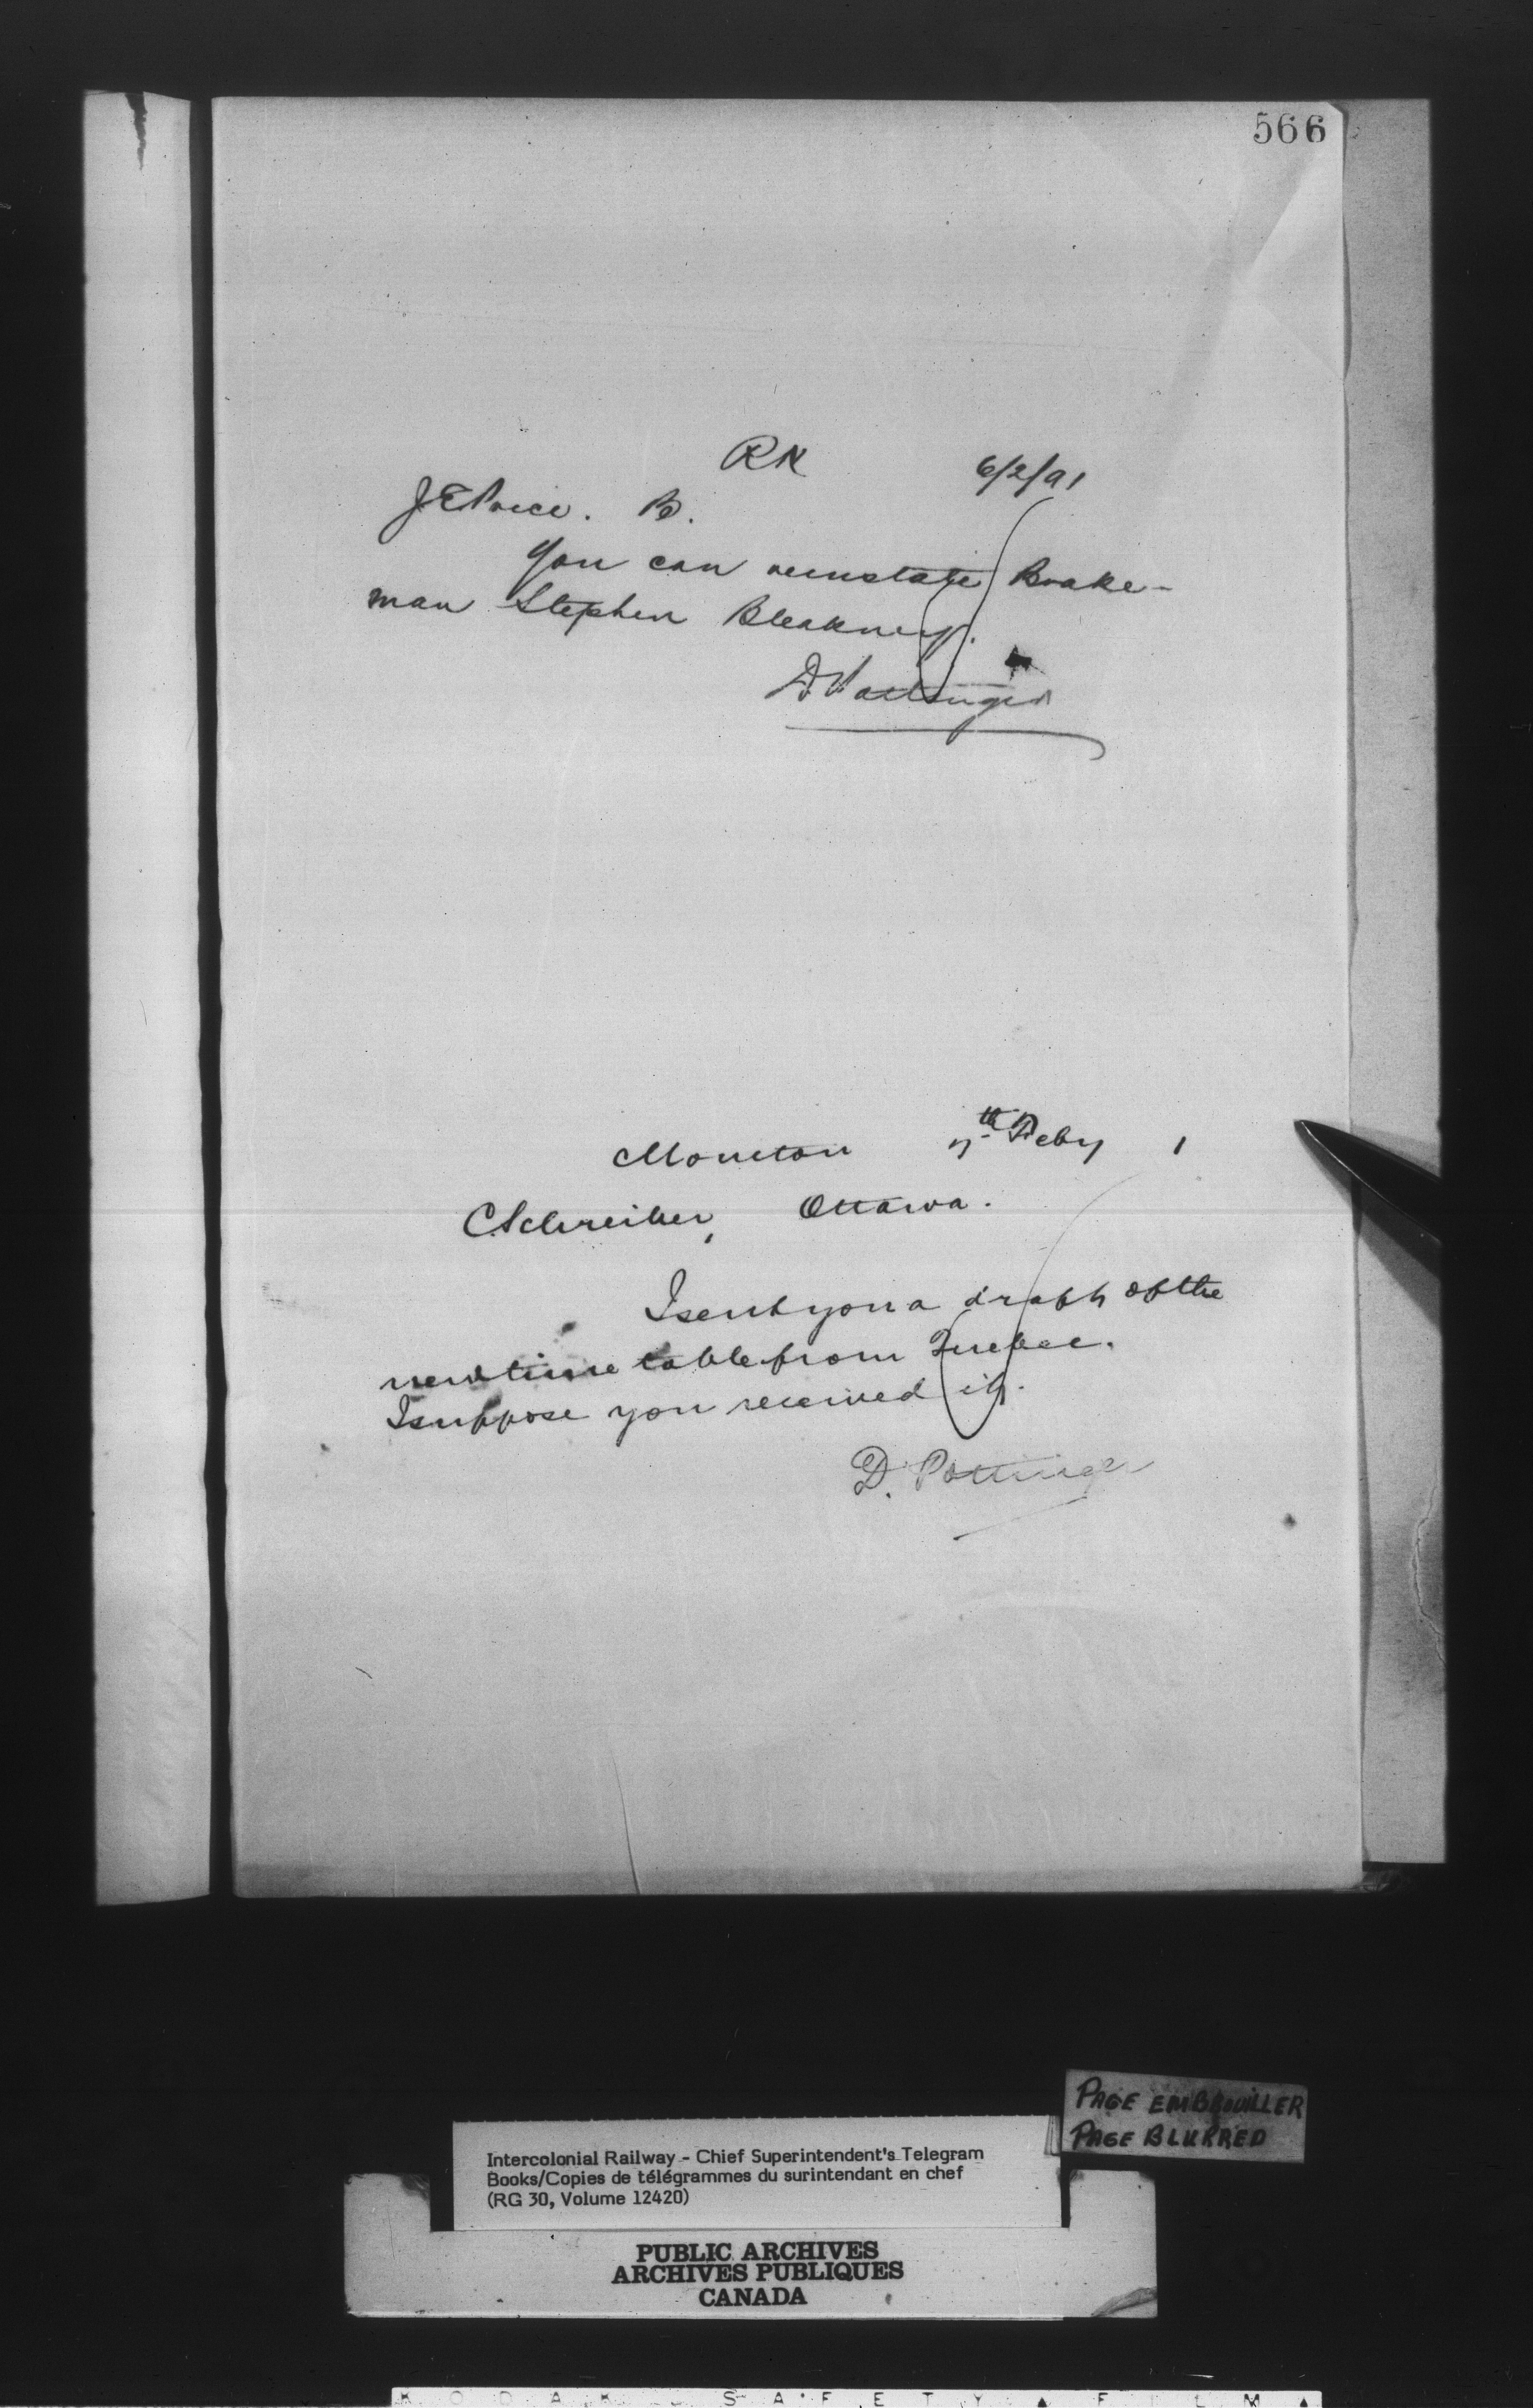 566
RN 6/2/91
J E Price. B.
You can reinstate Brake-
man Stephen Bleakney.
D Pottinger
Moncton 7th Feby 1
C. Schreiber, Ottawa.
I sent you a draft of the
new time table from Quebec.
I suppose you received it.
D. Pottinger
PAGE EMBROUILLER
PAGE BLURRED
Intercolonial Railway - Chief Superintendent's Telegram
Books/Copies de télégrammes du surintendant en chef
(RG 30, Volume 12420)
PUBLIC ARCHIVES
ARCHIVES PUBLIQUES
CANADA
KODAK SAFETY ▲ FILM ▲